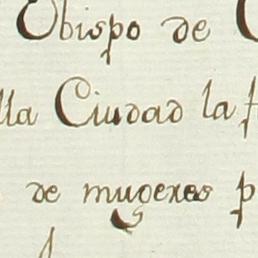 Obispo de
lla Ciudad la
de mugeres p